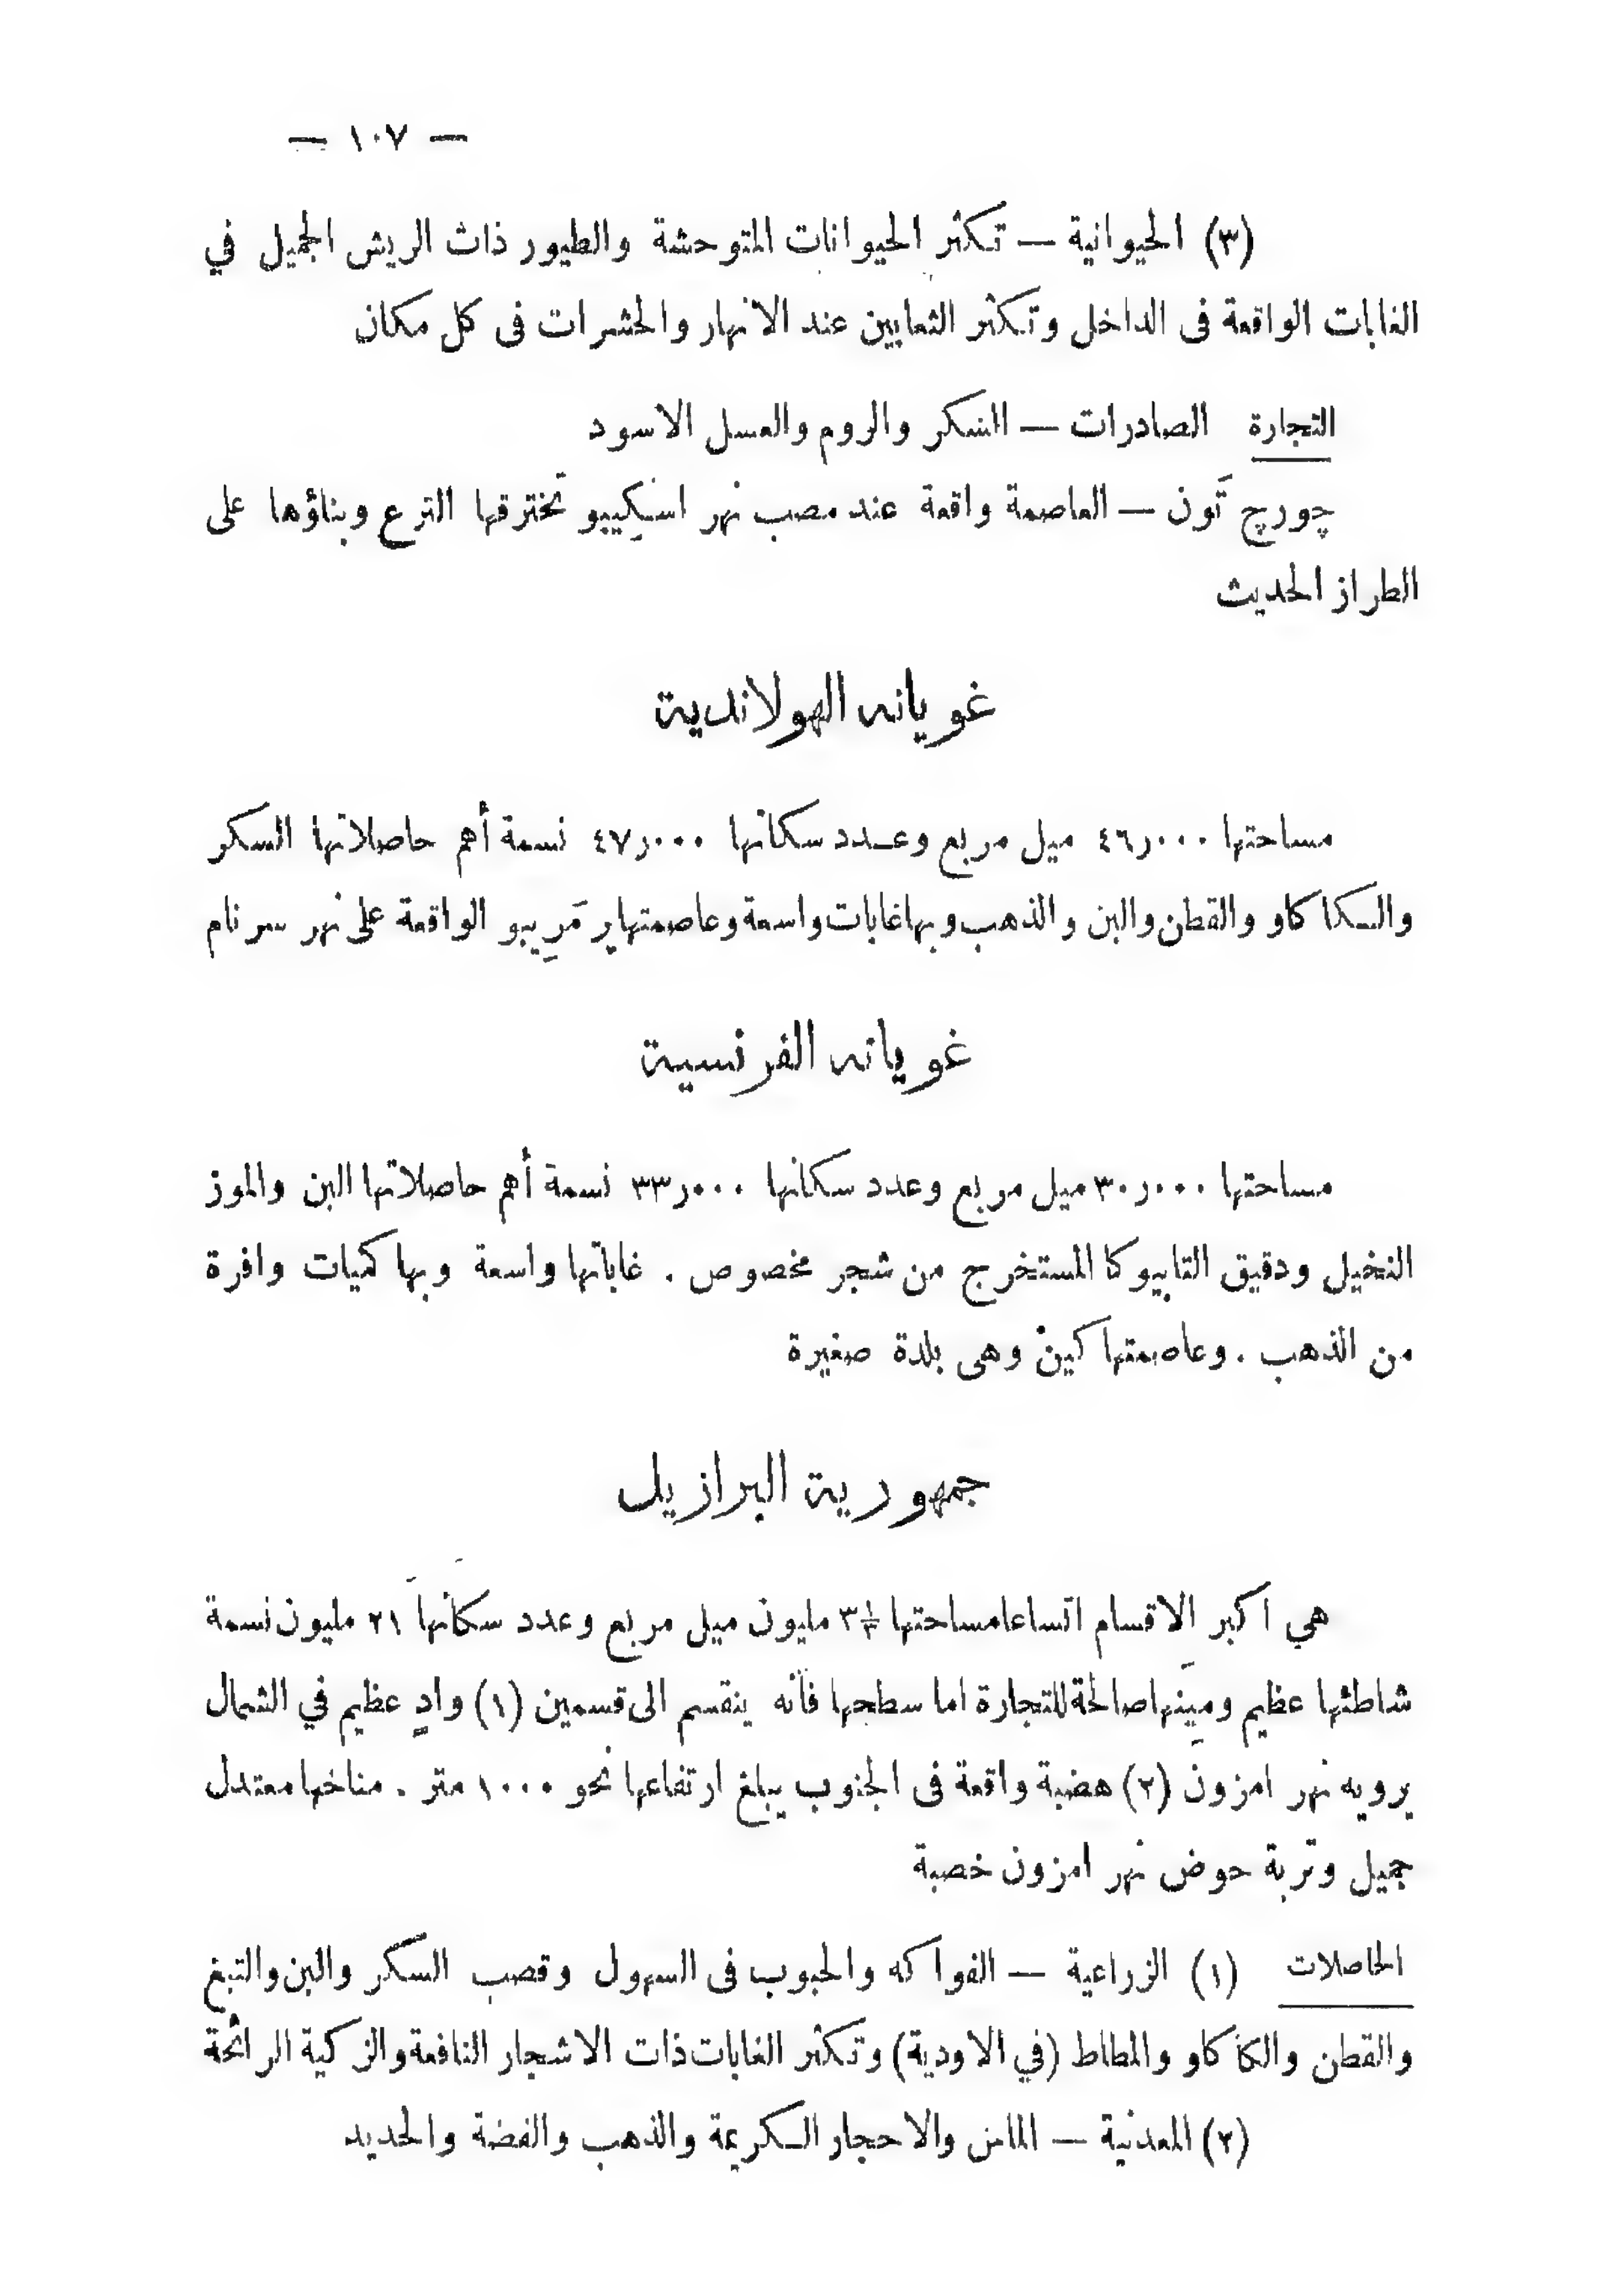 — ١٠٧ —
(٣) الحيوانية — تكثر الحيوانات المتوحشة والطيور ذات الريش الجميل في
الغابات الواقعة فى الداخل وتكثر الثعابين عند الانهار والحشرات فى كل مكان
التجارة الصادرات — السكر والروم والعسل الاسود
چورچ تَون — العاصمة واقعة عند مصب نهر اسكِيبو تخترقها الترع وبناؤها على
الطراز الحديث
غويانه الهولاندية
مساحتها ٤٦٫٠٠٠ ميل مربع وعدد سكانها ٤٧٫٠٠٠ نسمة أهم حاصلاتها السكر
والكاكاو والقطن والبن والذهب وبها غابات واسعة وعاصمتها پر مَرِيبو الواقعة على نهر سرنام
غويانه الفرنسية
مساحتها ٣٠٫٠٠٠ ميل مربع وعدد سكانها ٣٣٫٠٠٠ نسمة أهم حاصلاتها البن والموز
النخيل ودقيق التابيوكا المستخرج من شجر مخصوص . غاباتها واسعة وبها كميات وافرة
من الذهب . وعاصمتها كين وهى بلدة صغيرة
جمهورية البرازيل
هي اكبر الاقسام اتساعا مساحتها ٣ ميليون ميل مربع وعدد سكانها ٢١ مليون نسمة
شاطئها عظيم ومِينَها صالحة للتجارة اما سطحها فانه ينقسم الى قسمين (١) وادٍ عظيم في الشمال
يرويه نهر امزون (٢) هضبة واقعة فى الجنوب يبلغ ارتفاعها نحو ١٠٠٠ متر . مناخها معتدل
جميل وتربة حوض نهر امزون خصبة
الحاصلات (١) الزراعية — الفواكه والحبوب فى السهول وقصب السكر والبن والتبغ
والقطن والكاكاو والمطاط (في الاودية) وتكثر الغابات ذات الاشجار النافعة والزكية الرائحة
(٢) المعدنية — الماس والاحجار الكريمة والذهب والفضة والحديد